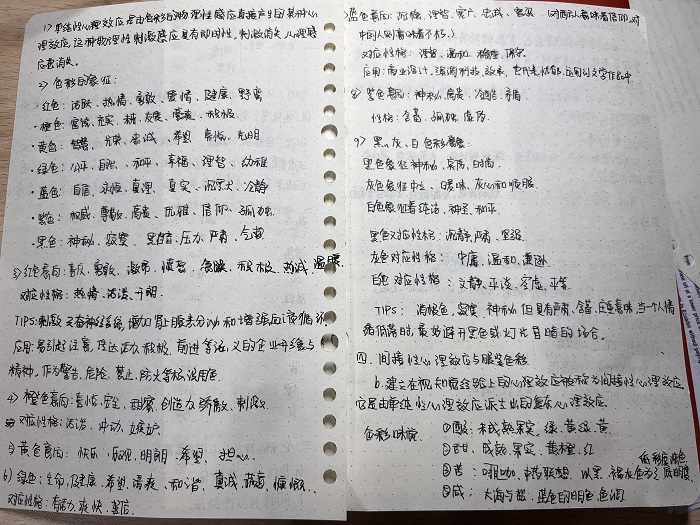 1）单纯性心理效应是由色彩的物理性感应直接产生的某种心
理效应，这种物理性刺激感应具有即时性，刺激消失，心理感
应着消失。
2）色彩的象征：
·红色：活跃、热情、勇敢、爱情、健康、野蛮
·橙色：富饶、充实、友爱、豪爽、积极
·黄色：智慧、光荣、忠诚、希望、喜悦、光明
·绿色：公平、自然、和平、幸福、理智、幼稚
·蓝色：自信、永恒、真理、真实、沉默、冷静
·紫色：权威、尊敬、高贵、优雅、信仰、孤独
·黑色：神秘、寂寞、黑暗、压力、严肃、气势
3）红色意向：喜庆、勇敢、激昂、愤怒、危险、积极、热诚、温暖
对应性格：热情、活泼、开朗
TIPS：刺激交感神经系统，增加肾上腺素分泌和增强
应用：易引起注意，传达活力、积极、前进等涵义的企业形象与
精神，作为警告、危险、禁止、防火等标识用色
4）橙色意向：喜悦、安全、甜蜜、创造力、骄傲、刺激
对应性格：活泼、冲动、嫉妒
5）黄色意向：快乐、乐观、明朗、希望、担心
6）绿色：生命、健康、希望、清爽、和谐、真诚、慷慨
对应性格：有活力、爽快、坚信
蓝色意向：理智、宽广、忠诚（对西方人意味着信仰，对
中国人则意味着不朽。）
对应性格：理智、温和
应用：商业设计，强调科技、效率，应用到文学作品中
8）紫色意向：神秘、高贵
性格：含蓄、孤独
9）黑、灰、白色彩意象：
黑色象征神秘、哀伤、时尚
灰色象征中立、暧昧、灰心和顺服
白色象征着纯洁、神圣、和平
黑色对应性格：沉静、严肃、坚强
灰色对应性格：中庸、温和、谦逊
白色对应性格：文静、平淡、空虚、平等
TIPS：消极色，寂寞、神秘但具有严肃、含蓄、庄重意味，当一个人情
绪低落时，最好避开黑色或灯光昏暗的场合。
四、间接性心理效应与服装色彩
b.建立在视和嗅经验上的心理效应被称为间接性心理效应，
它是由单纯性心理效应派生出的复杂心理效应。
色彩味觉：①酸：未成熟果实，绿、黄绿、黄
②甜：成熟果实，黄橙、红
③苦：咖啡、中药联想，以黑、褐灰色为主 低彩度浊色 低明度
④咸：大海与盐，蓝色的明色色调